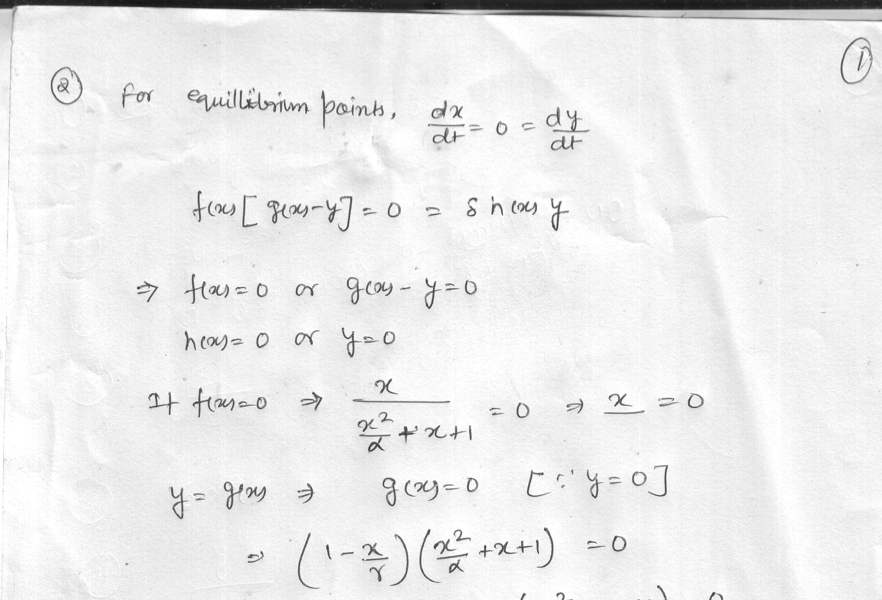 ①
② For equillibrium points, dx/dt = 0 = dy/dt
f(x) [ g(x) - y ] = 0 = δ h(x) y
⇒ f(x) = 0 or g(x) - y = 0
h(x) = 0 or y = 0
If f(x) = 0 ⇒ x / (x²/α + x + 1) = 0 ⇒ x = 0
y = g(x) ⇒ g(x) = 0 [∵ y = 0]
⇒ (1 - x/γ) (x²/α + x + 1) = 0